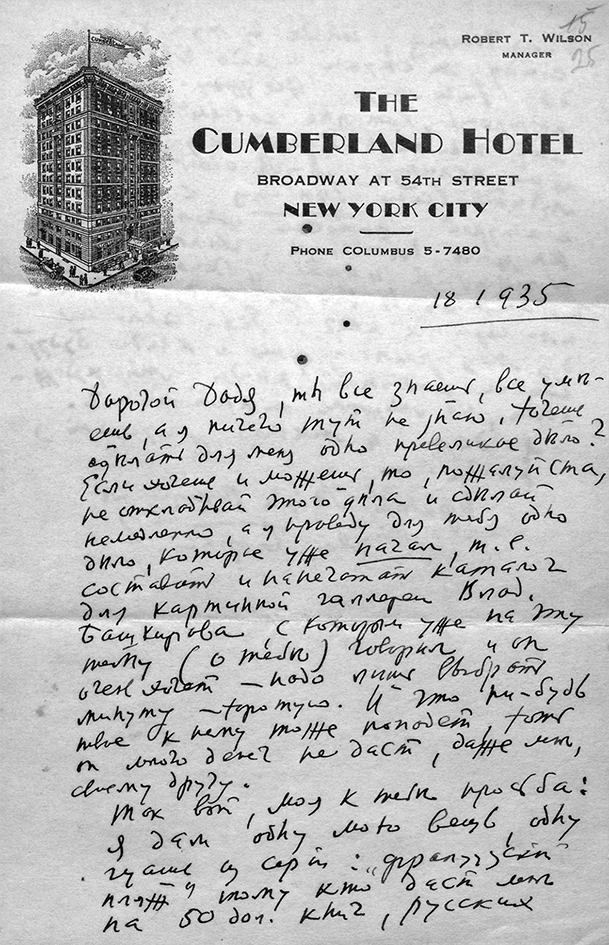 15
25
ROBERT T. WILSON
MANAGER
CUMBERLAND
THE
CUMBERLAND HOTEL
BROADWAY AT 54TH STREET
NEW YORK CITY
PHONE COLUMBUS 5-7480
18 1 935
Дорогой Додя, ты все знаешь, все умѣ-
ешь, а я ничего тут не знаю, хочешь
сдѣлать для меня одно превеликое дѣло?
Если хочешь и можешь, то, пожалуйста,
не откладывай этого дѣла и сдѣлай
немедленно, а я проведу для тебя одно
дѣло, которое уже начал, т.е.
составить и напечатать каталог
для картинной галлереи Влад.
Башкирова, с которым уже на эту
тему (о тебѣ) говорил и он
очень хочет — надо лишь выбрать
минуту — хорошую. И что ни-будь
твое к нему тоже попадет, хотя
он много денег не даст, даже мнѣ,
своему другу.
Так вот, моя к тебѣ просьба:
я дам одну мою вещь, одну
гуашь из серiи: „французскiй
пляж" тому кто даст мнѣ
на 50 дол. книг, русских